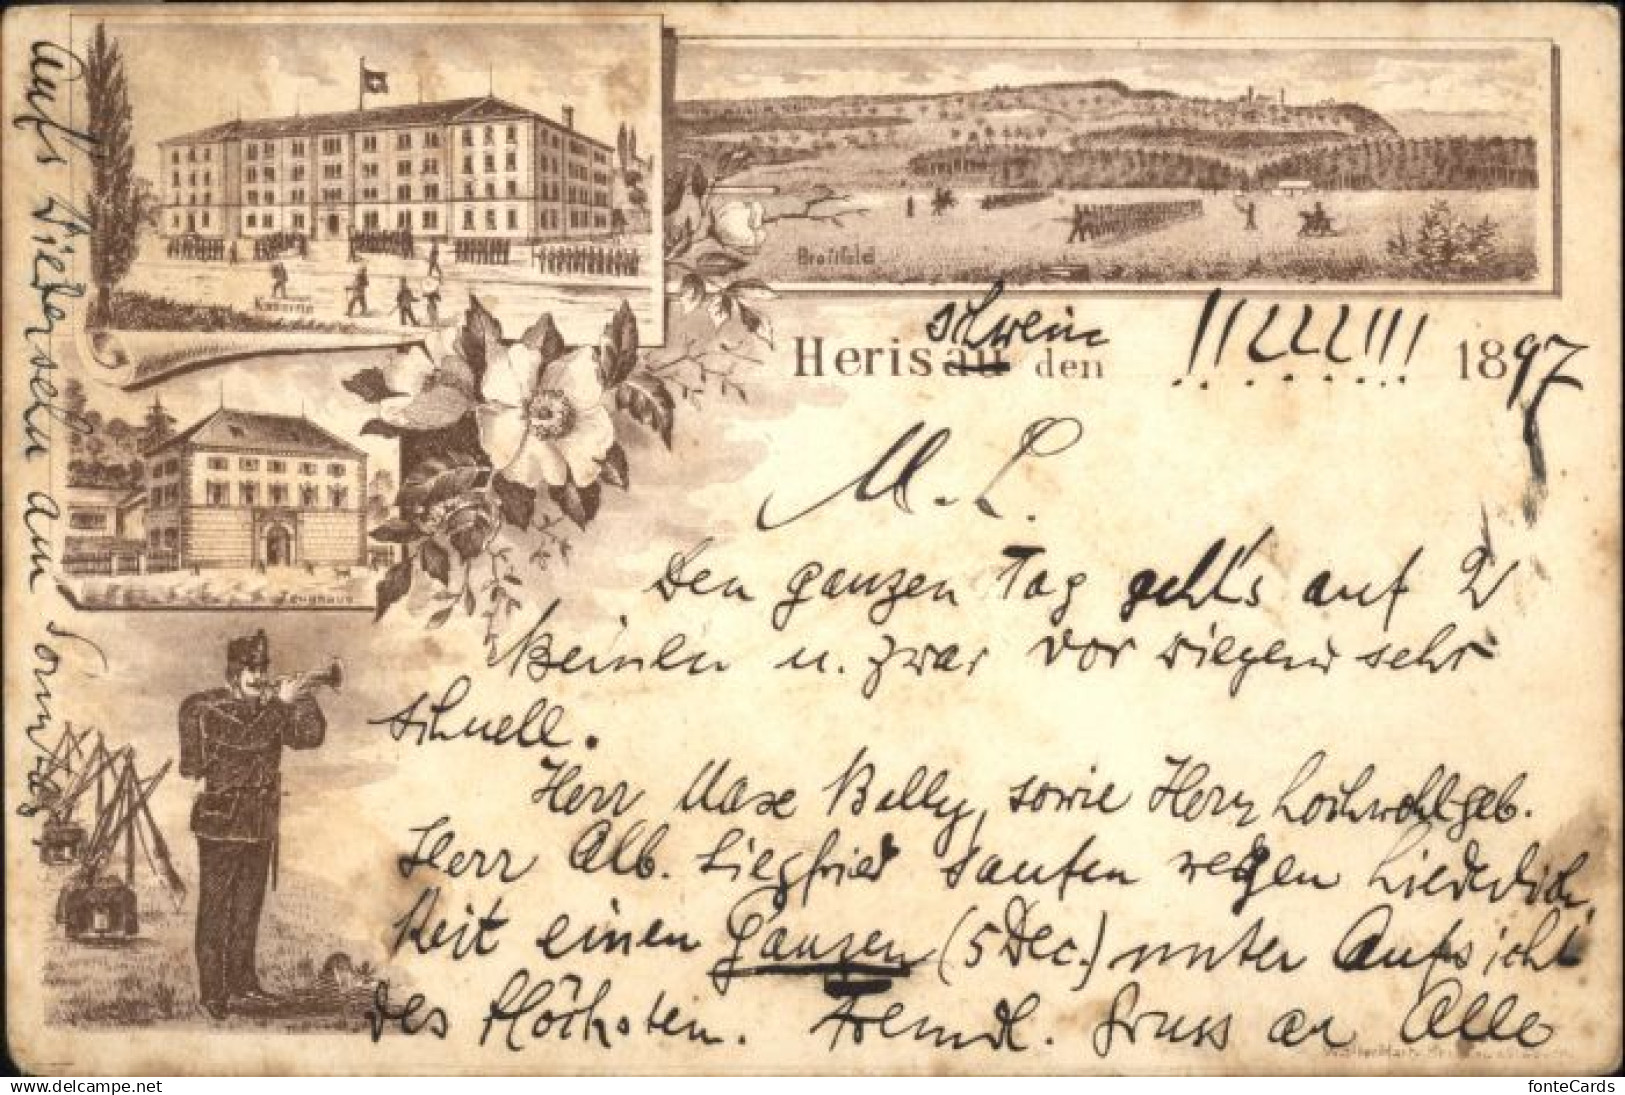 Kaserne
Breitfeld
Zeughaus
schwein
Herisau den !!!!!!!! 1897
M. L.
Den ganzen Tag geht's auf 2
Beinen u. zwar vor wiegend sehr
schnell.
Herr Maxe Belly, sowie Herr hochwohlgeb.
Herr Alb. Siegfried saufen wegen Liederlich
keit einen Ganzen (5 Dec.) unter Aufsicht
des Höchsten. Freundl. Gruss an Alle
Aufs Wiedersehn am Sonntag
fonteCards
www.delcampe.net